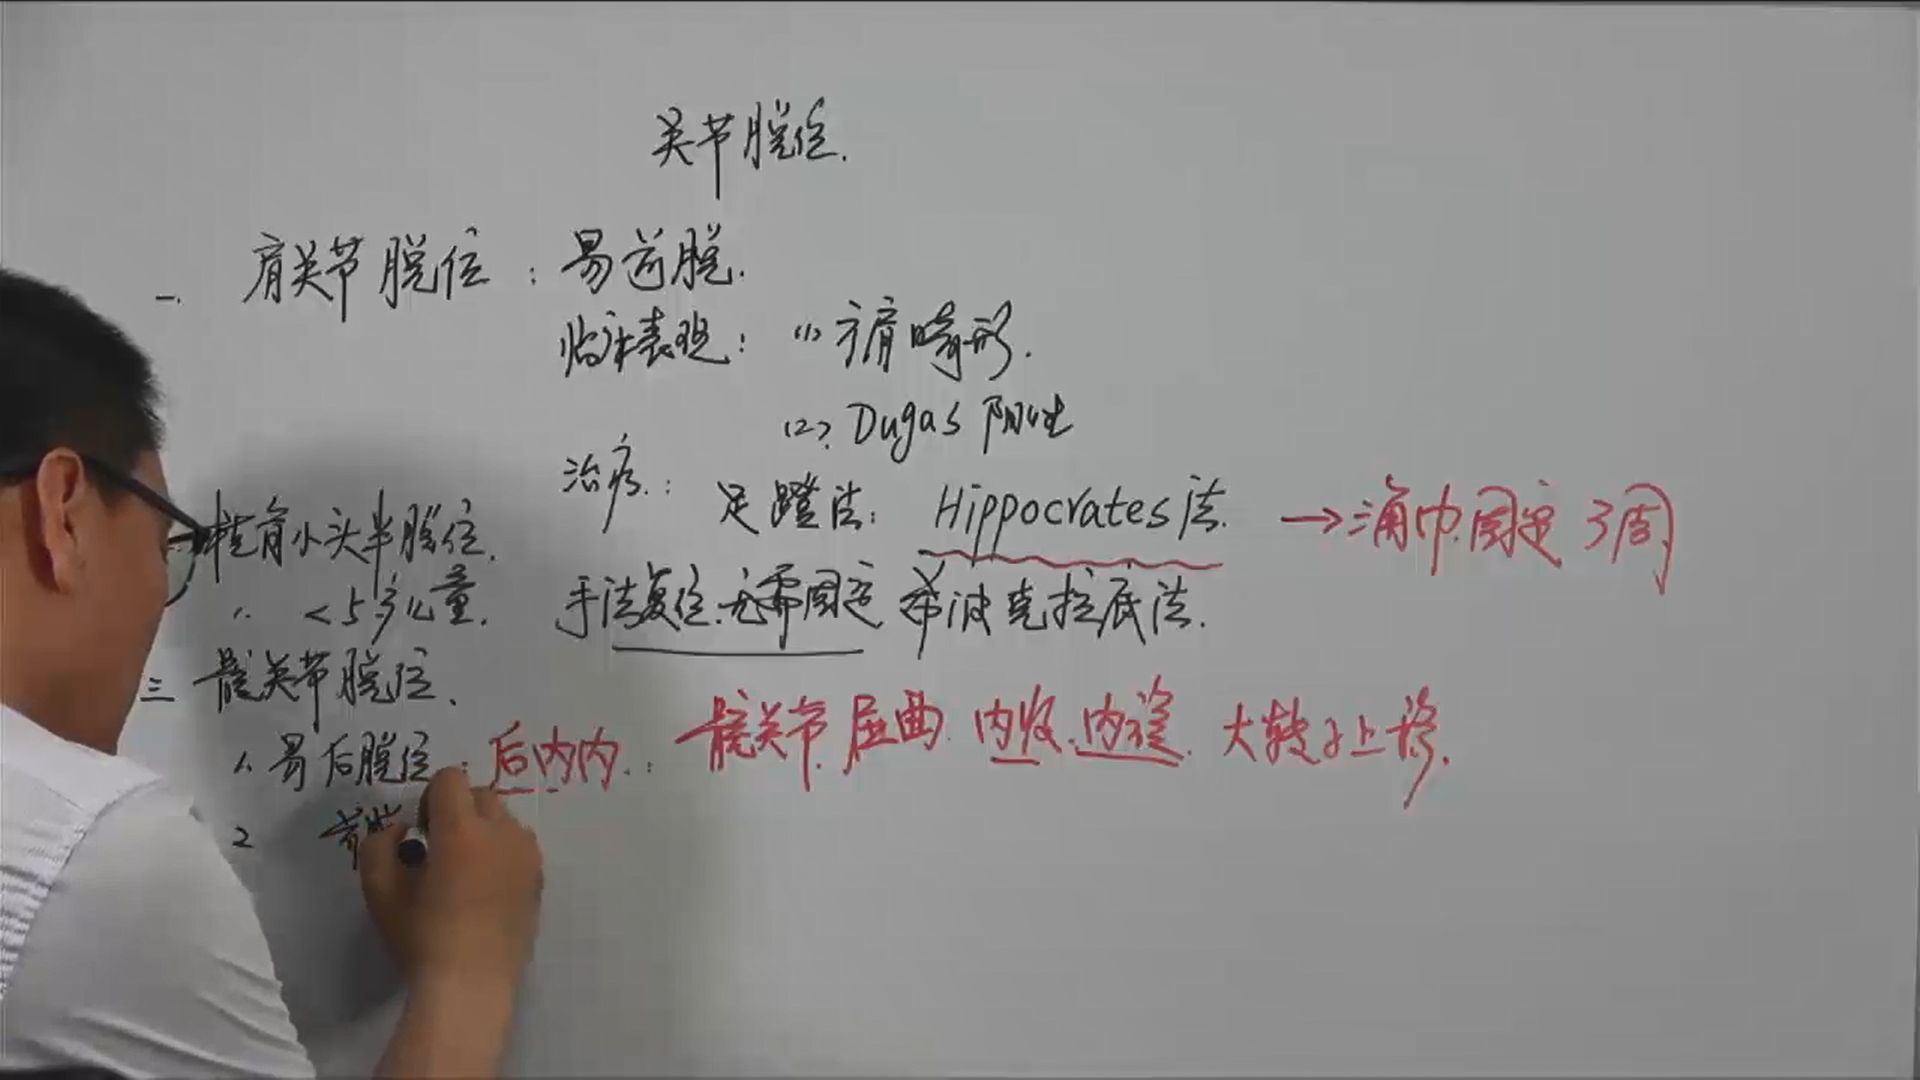 关节脱位.
一. 肩关节脱位: 易前脱.
临床表现: (1) 方肩畸形.
(2). Dugas 阳性
治疗: 足蹬法: Hippocrates法. → 三角巾固定 3周
桡骨小头半脱位.
1. <5岁儿童. 手法复位.无需固定 希波克拉底法.
三 髋关节脱位.
1. 易后脱位: 后内内.: 髋关节.屈曲 内收.内旋. 大转子上移.
2